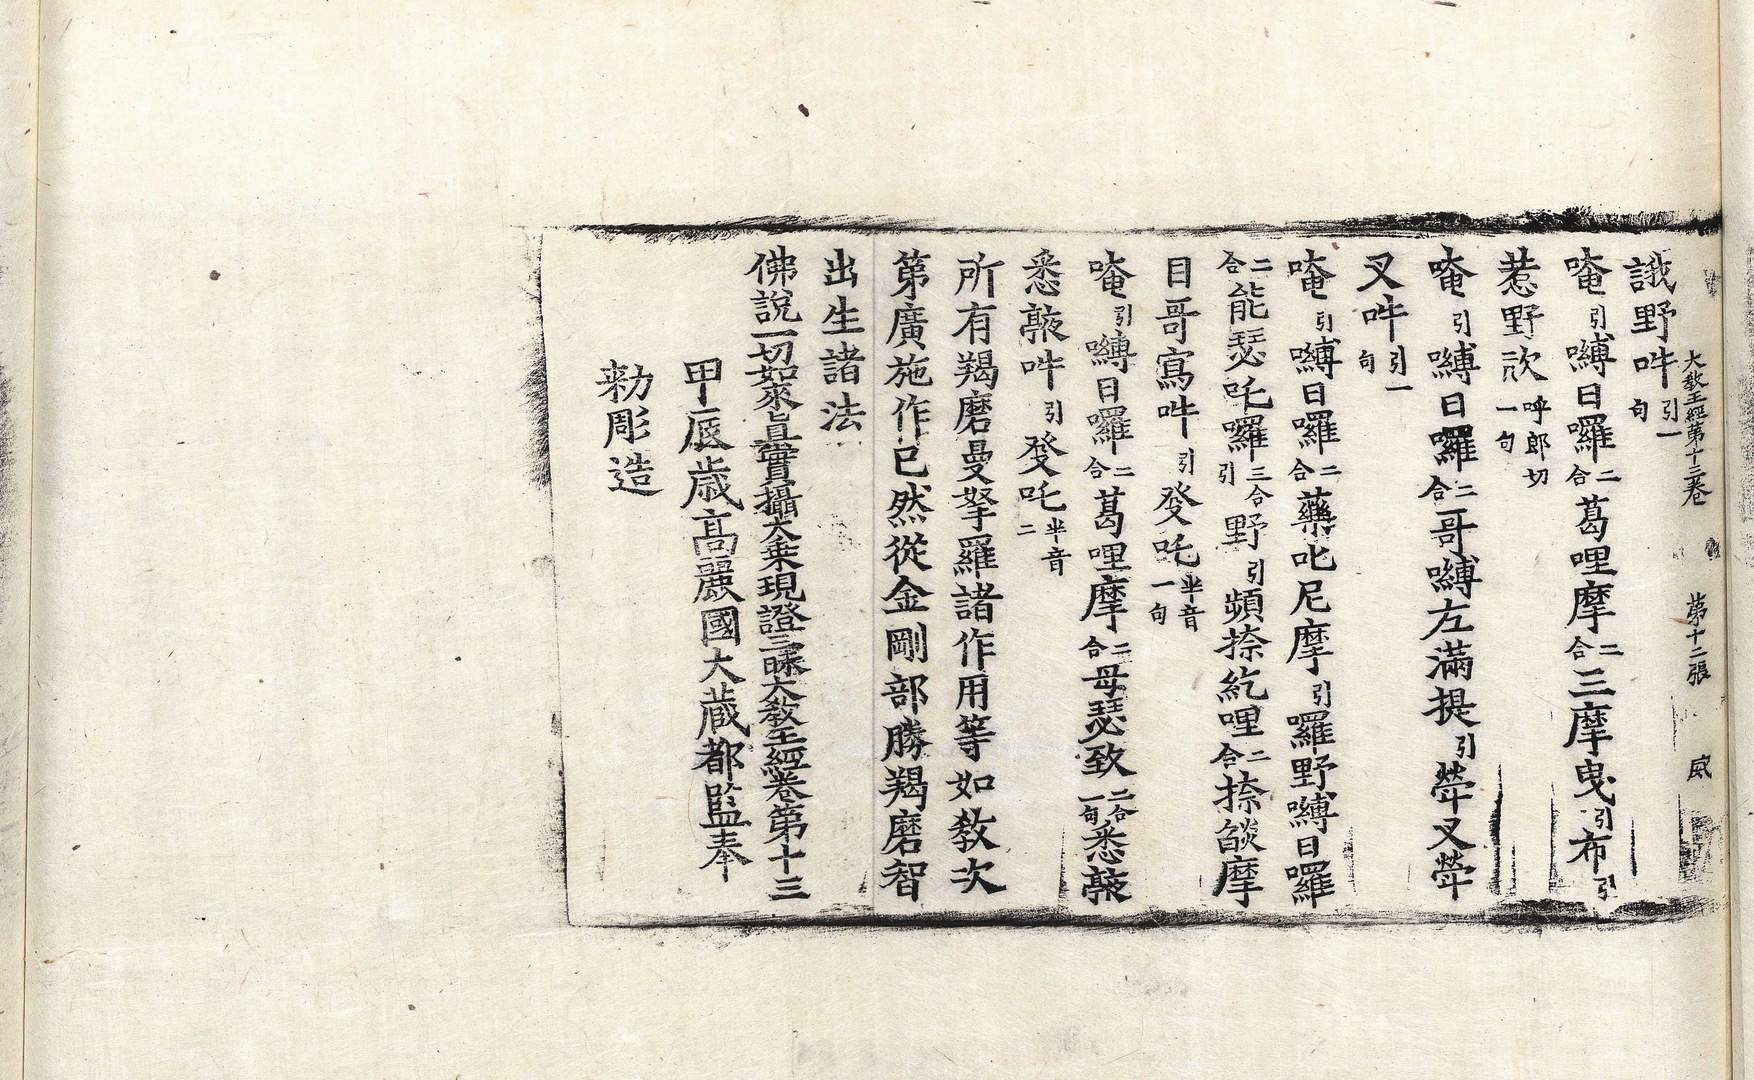 大教王經第十三卷 第十二張
誐野吽引一句
唵引嚩日囉二合葛哩摩二合三摩曳引布引
惹野欤呼郎切一句
唵引嚩日囉二合哥嚩左滿提引犖叉犖
叉吽引一句
唵引嚩日囉二合藥叱尼摩引羅野嚩日囉
二合能瑟吒囉三合引野引頻捺紇哩二合捺𦦨摩
目哥寫吽引發吒半音一句
唵引嚩日囉二合葛哩摩二合母瑟致二合一句悉𢾊
悉𢾊吽引發吒半音二
所有羯磨曼拏羅諸作用等如教次
第廣施作已然從金剛部勝羯磨智
出生諸法
佛說一切如來眞實攝大乘現證三昧大教王經卷第十三
甲辰歲高麗國大藏都監奉
勅彫造